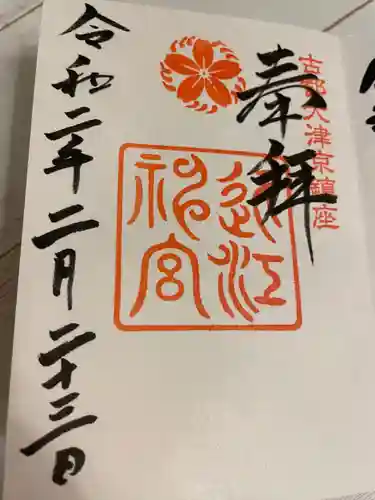 奉拝
古都大津京鎮座
近江神宮
令和二年二月二十三日